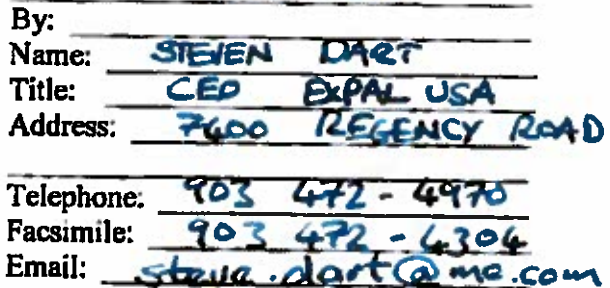 By:
Name: STEVEN DART
Title: CEO EXPAL USA
Address: 7600 REGENCY ROAD
Telephone: 903 472 - 4970
Facsimile: 903 472 - 4304
Email: steve.dart@me.com